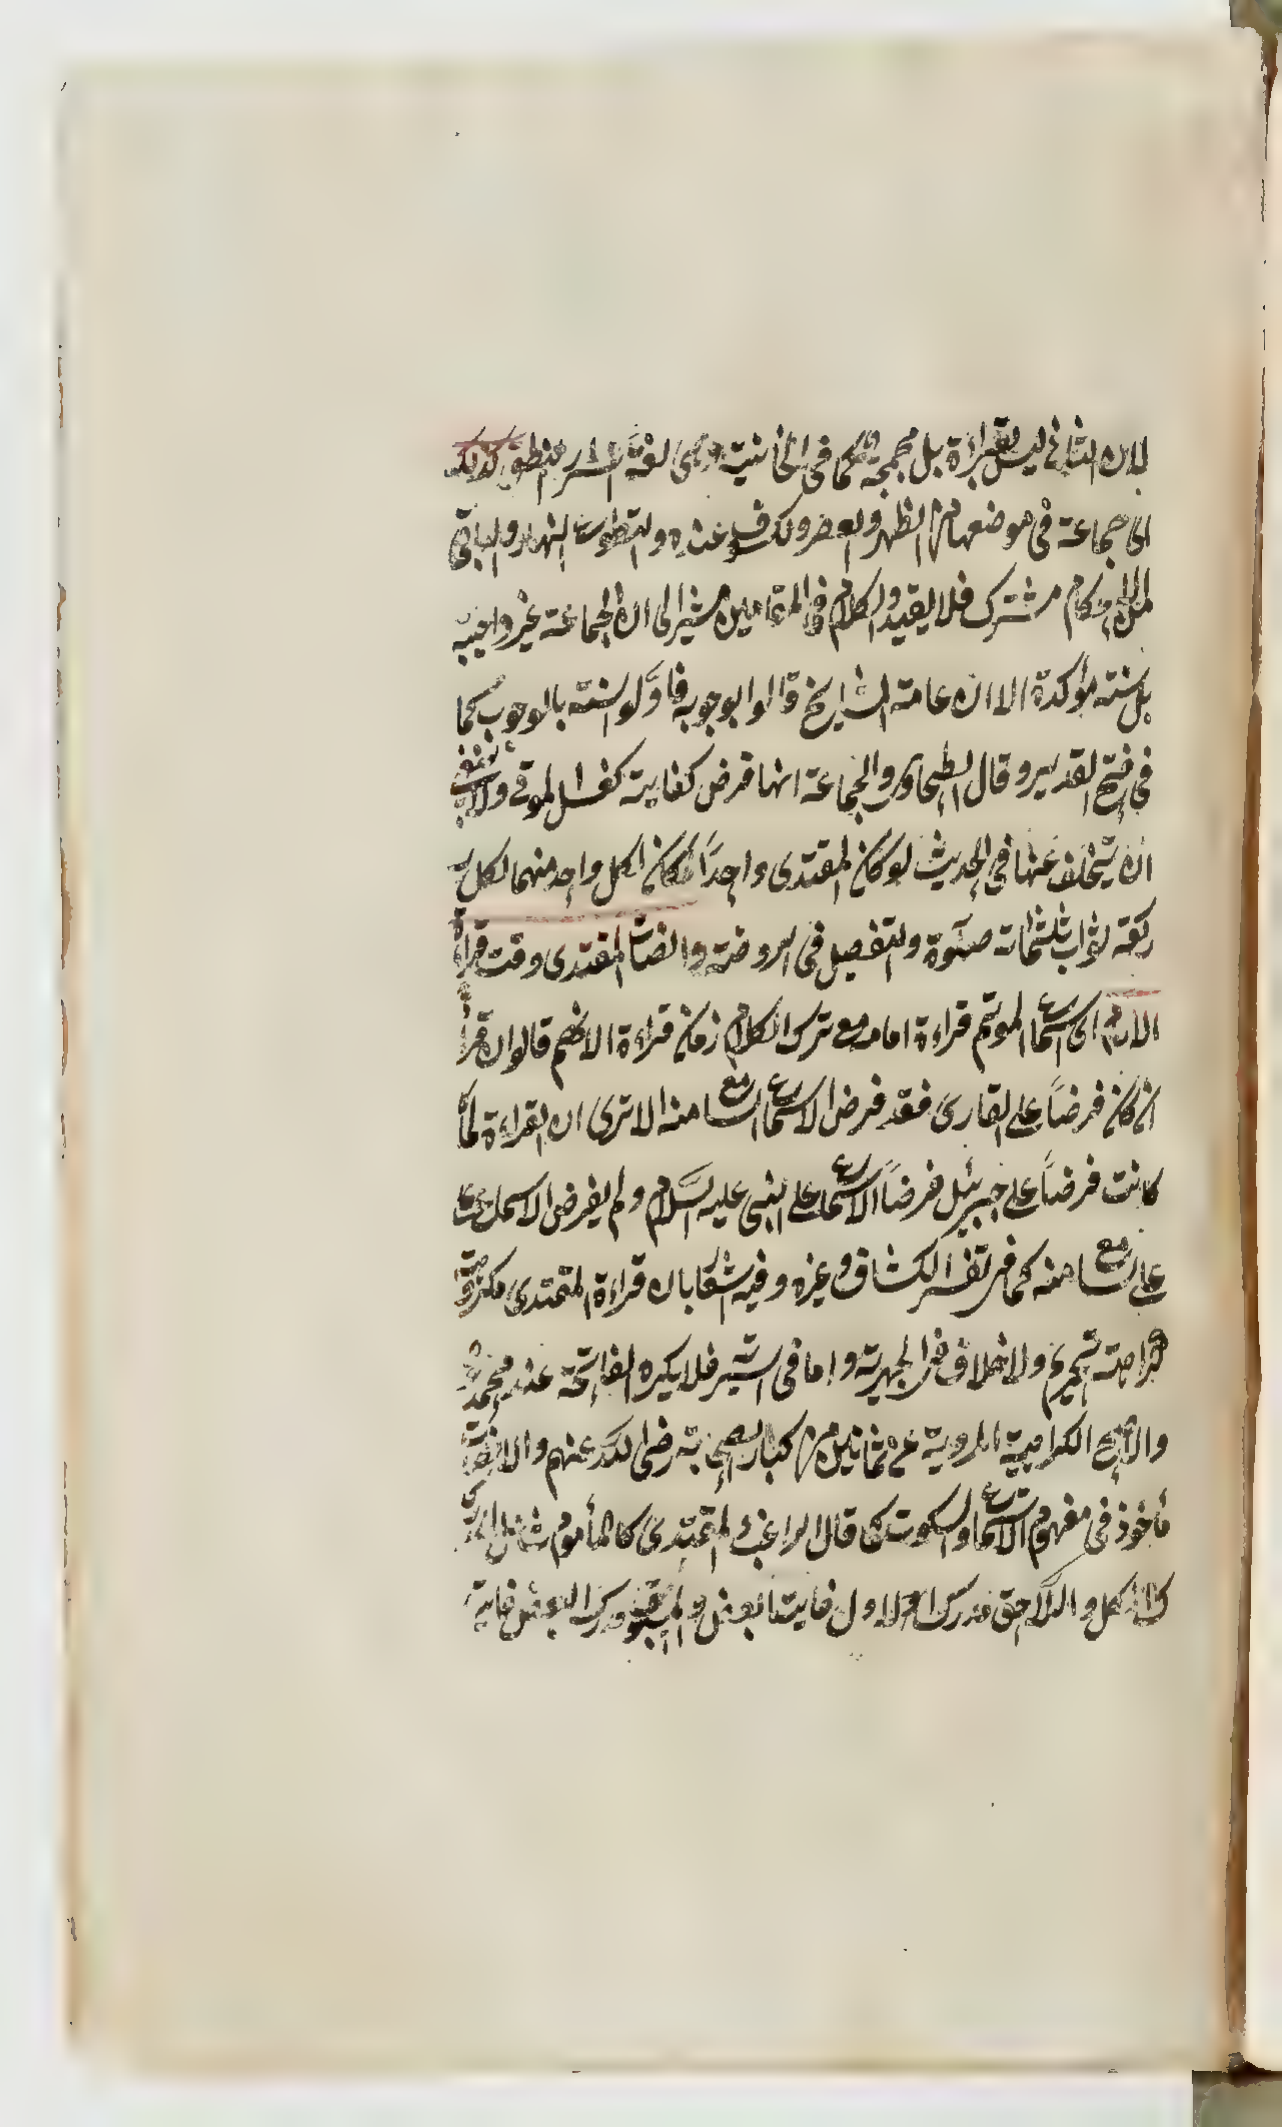 لان الثاني ليس بقراءة بل مجمجة كما في الخانية وهى لغة السر منطق كذلك
اى جماعة في موضعها من الظهر والعصر وكسوف عنده والتطوع النهار والباقي
من الاحكام مشترك فلا يقيد والكلام في المقامين مشير الى ان الجماعة غير واجبة
بل سنة مؤكدة الا ان عامة المشايخ قالوا بوجوبه فاوّلوا السنة بالوجوب كما
في فتح القدير وقال الطحاوى والجماعة انها فرض كفاية كغسل الموتى ولا ينبغى
ان يتخلف عنها في الحديث لو كان المقتدى واحدًا لكان لكل واحد منهما لكل
ركعة ثواب صلوة والتفصيل في الروضة وانصات المقتدى وقت قراءة
الامام اى استماع الموتم قراءة امامه مع ترك الكلام زمان قراءة الامام قالوا ان
ان كان فرضًا على القارى فقد فرض الاستماع السامع منه الا ترى ان القراءة لما
كانت فرضًا على جبريل فرضًا الاستماع على النبى عليه السلام ولم يفرض الاستماع
على السامع منه كما في تفسير الكشاف وغيره وفيه اشعار بان قراءة المقتدى مكروهة
كراهة تحريم ولا خلاف في الجهرية واما في السر فلا يكره الفاتحة عند محمد
والاصح الكراهية المروية عن ثمانين من كبار الصحابة رضى الله عنهم والانصات
مأخوذ في مفهوم الاستماع والسكوت كما قال الراغب المقتدى كالمأموم شامل
الكل واللاحق مدرك الاول فايت البعض والمسبوق مدرك البعض فايت